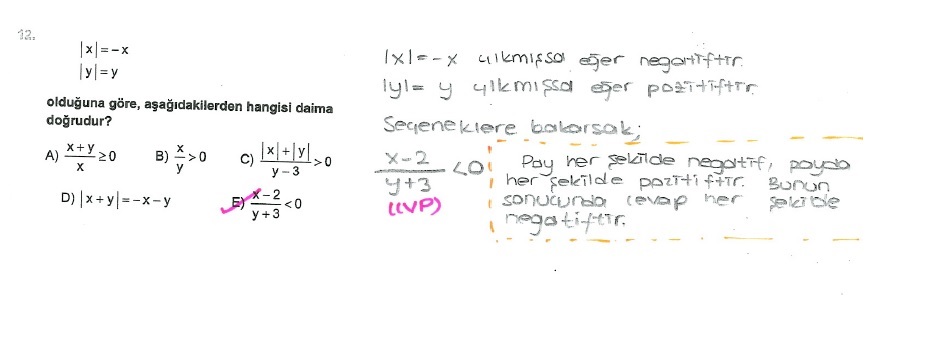 12.
|x|=-x
|y|=y
olduğuna göre, aşağıdakilerden hangisi daima
doğrudur?
A) x+y/x ≥0 B) x/y >0 C) |x|+|y|/y-3 >0
D) |x+y|=-x-y E) x-2/y+3 <0
|x|=-x çıkmışsa eğer negatiftir.
|y|= y çıkmışsa eğer pozitiftir.
Seçeneklere bakarsak;
x-2/y+3 <0
(CVP)
Pay her şekilde negatif, payda
her şekilde pozitiftir. Bunun
sonucunda cevap her şekilde
negatiftir.